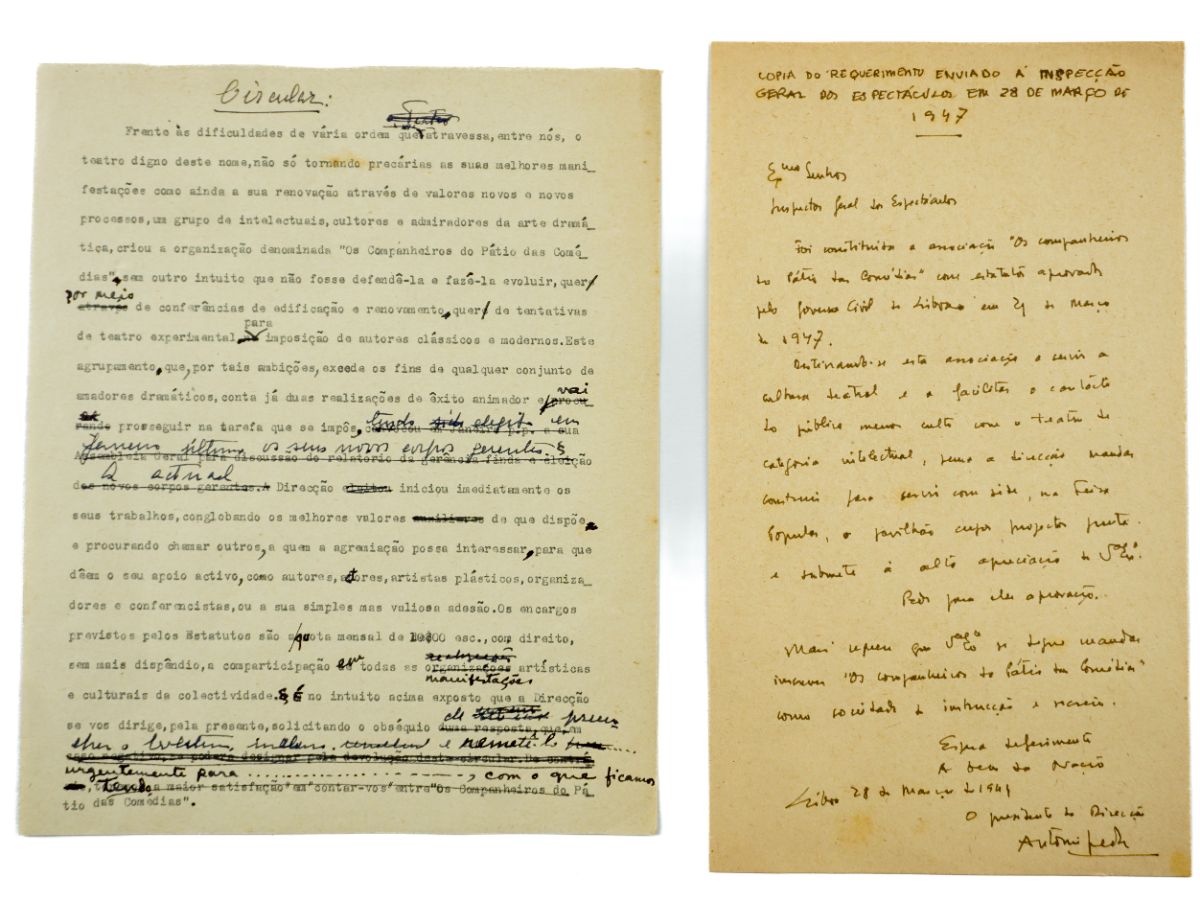 Circular:
Frente às dificuldades de vária ordem que atravessa, entre nós, o
teatro digno deste nome, não só tornando precárias as suas melhores mani_
festações como ainda a sua renovação através de valores novos e novos
processos, um grupo de intelectuais, cultores e admiradores da arte dramá_
tica, criou a organização denominada "Os Companheiros do Pátio das Comé_
dias", sem outro intuito que não fosse defendê-la e fazê-la evoluir, quer
por meio
através de conferências de edificação e renovamento, quer de tentativas
para
de teatro experimental, imposição de autores clássicos e modernos. Este
agrupamento, que, por tais ambições, excede os fins de qualquer conjunto de
vai
amadores dramáticos, conta já duas realizações de êxito animador e procu_
rando prosseguir na tarefa que se impôs, tendo sido eleg em
convocou em Janeiro p.p. a sua
Janeiro último os seus novos corpos gerentes.
Assembleia Geral para discussão do relatório da gerência finda e eleição
A actual
dos novos corpos gerentes. A Direcção eleita iniciou imediatamente os
seus trabalhos, conglobando os melhores valores auxiliares de que dispõe
e procurando chamar outros, a quem a agremiação possa interessar, para que
dêem o seu apoio activo, como autores, actores, artistas plásticos, organiza_
dores e conferencistas, ou a sua simples mas valiosa adesão. Os encargos
previstos pelos Estatutos são a quota mensal de 10$00 esc., com direito,
sem mais dispêndio, a comparticipação em todas as organizações artísticas
manifestações
e culturais da colectividade. É no intuito acima exposto que a Direcção
se vos dirige, pela presente, solicitando o obséquio de preen
duma resposta, que, em
cher o boletim e remetê-lo
urgentemente para ............, com o que ficamos
tendo a maior satisfação em contar-vos entre "Os Companheiros do Pá_
tio das Comédias".
COPIA DO REQUERIMENTO ENVIADO À INSPECÇÃO
GERAL DOS ESPECTÁCULOS EM 28 DE MARÇO DE
1947
Exmo Senhor
Inspector Geral dos Espectáculos
Foi constituida a associação "Os companheiros
do Pátio das Comédias" com estatutos aprovados
pelo Governo Civil de Lisboa em 21 de Março
de 1947.
Destinando-se esta associação a servir a
cultura teatral e a facilitar o contácto
do público menos culto com o teatro de
categoria intelectual, pensa a direcção mandar
construir para servir com sede, na Feira
Popular, o pavilhão cujos projectos junta
e submete à alta apreciação de V. Excia.
Pede para eles aprovação.
Mais requer que V. Excia se digne mandar
inscrever "Os companheiros do Pátio das Comédias"
como sociedade de instrucção e recreio.
Espera deferimento
A bem da Nação
Lisboa 28 de Março de 1947
O presidente da Direcção
António Pedro